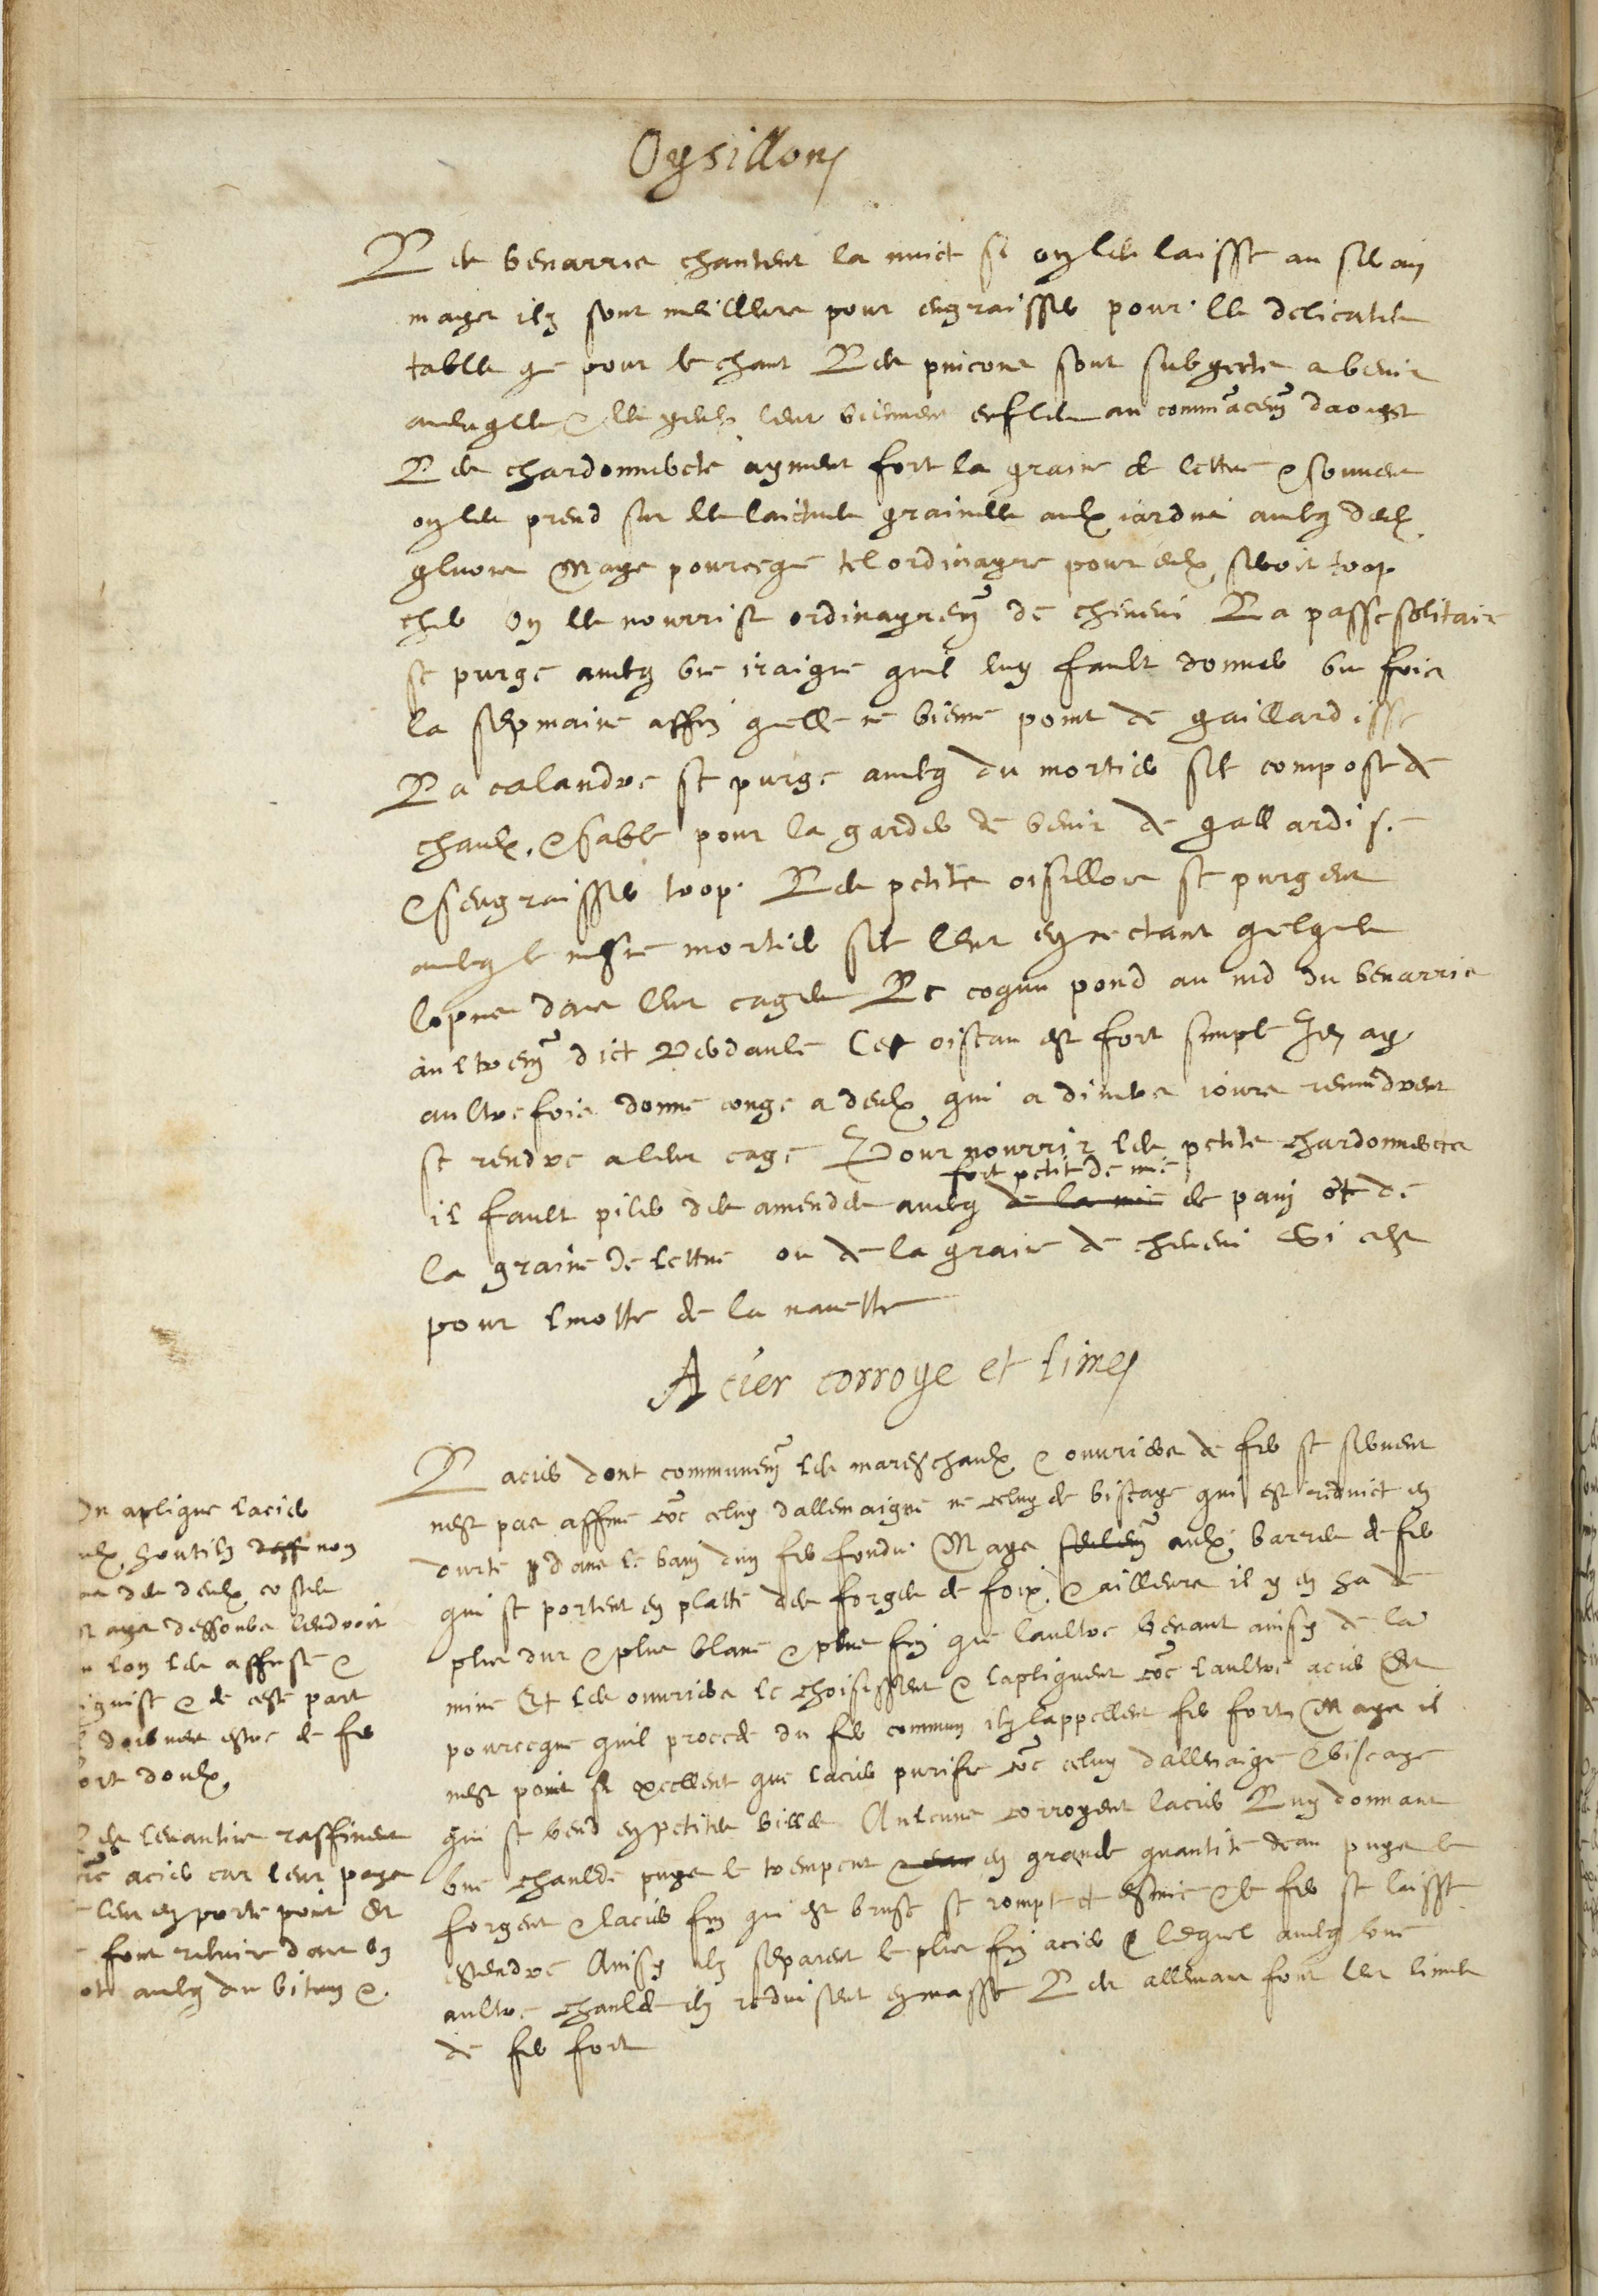 Oysillons
Les benarris chantent la nuict si on les laisse au serain
mays ilz sont meilleurs pour engraisser pour les delicates
tables que pour le chant Les pincons sont subgects a venir
aveugles & les yeulx leur viennent enfles au commancem{ent} daoust
Les chardonnerets ayment fort la graine de lettue & souvent
on les prend sur les laictues grainees aulx iardins avecq des
gluons Mays pourceque tel ordinayre pour eulx seroit trop
cher on les nourrist ordinayrem{ent} de chenevi La passe solitaire
se purge avecq une iraigne quil luy fault donner une fois
la sepmaine affin quelle ne vienne point de gaillardisse
La calandre se purge avecq du mortier sec compose de
chaulx & sable pour la garder de venir de gallardise
& sengraisser trop. Les petits oisillons se purgent
avecq le mesme mortier sec leur en iectant quelques
lopins dans leur cages Le coqu pond au nid du benarric
aultrem{ent} dict Verdaule Cet oiseau est fort simple Jen ay
aultresfois donne conge a deulx qui a divers iours revindrent
se rendre a leur cage Pour nourrir les petits chardonnerets
fort petit de mie
il fault piler des amendes avecq de la mie de pain et de
la graine de lettue ou de la graine de chenevi Si cest
pour linotte de la navette
Acier corroye et limes
Lacier dont communem{ent} les mareschaulx & ouvriers de fer se servent
nest pas affine co{mm}e celuy dallemaigne ne celuy de biscaye qui est reduict en
durte dans le bain dun fer fondu Mays seulem{ent} aulx barres de fer
qui se portent en platte des forges de foix & ailleurs il y en ha de
plus dur & plus blanc & plus fin que laultre venant ainsy de la
mine Et les ouvriers le choisissent & lapliquent co{mm}e laultre acier Et
pourceque quil procede du fer commun ilz lappellent fer fort Mays il
nest point si excellent que lacier purifie co{mm}e celuy dallemaigne & biscaye
qui se vend en petites billes Aulcuns corroyent lacier Luy donnant
une chaulde puys le trempent en grande quantite deau puys le
forgent & lacier fin qui est brusc se rompt et esmie & le fer se laisse
estendre Ainsy ilz separent le plus fin acier lequel avecq une
aultre chaulde ilz reduisent en masse Les allemans font leurs limes
de fer fort
On aplique lacier
aulx houtils non
pas des deulx costes
mays dessoubs lendroit
ou lon les affuste &
aiguise & de ceste part
doibvent estre de fer
fort doulx
Les levantins raffinent
acier car leur pays
leur en porte point Et
font recuire dans un
pot avecq du bitum &